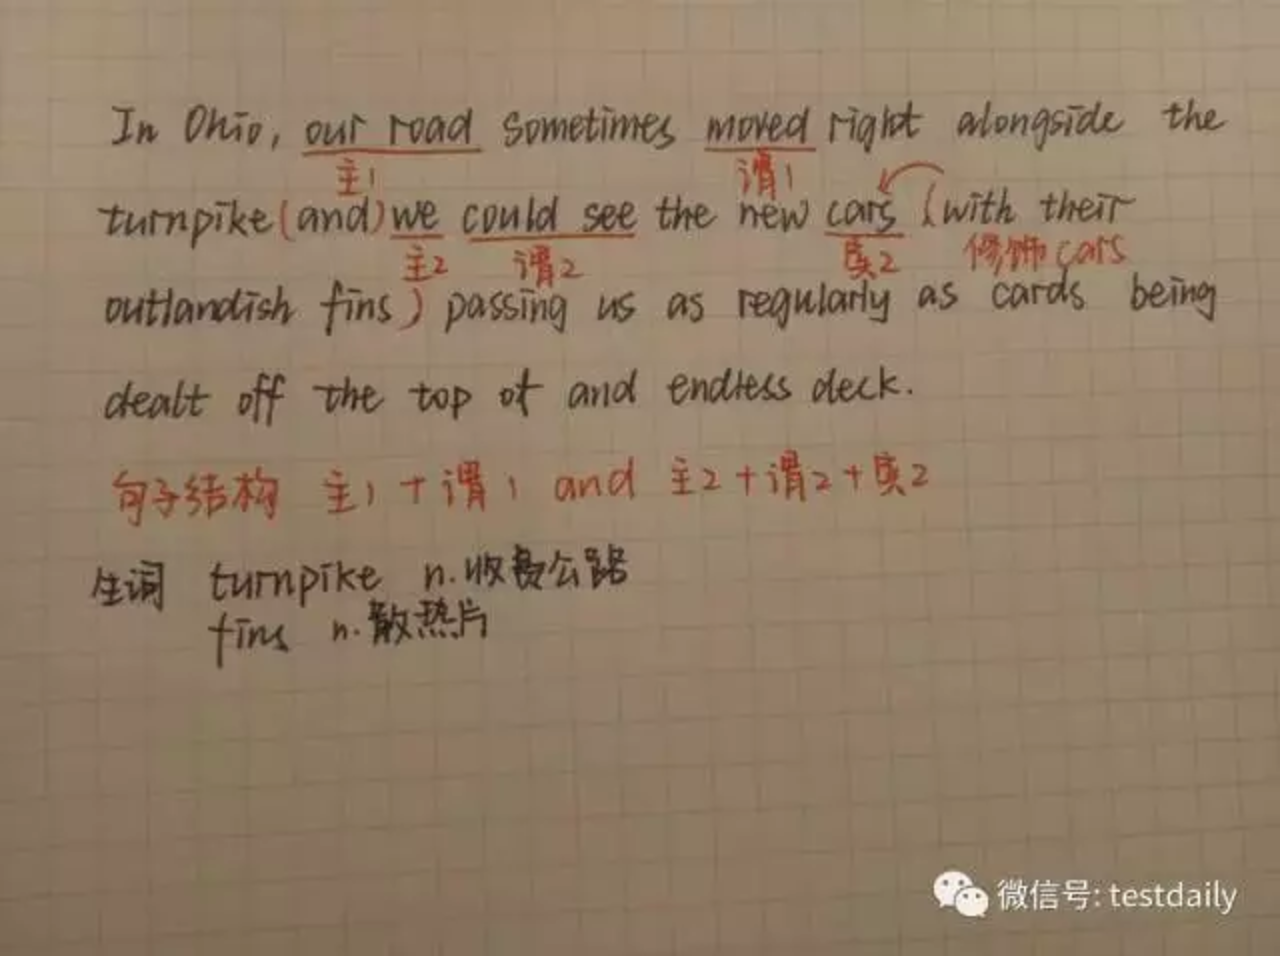 In Ohio, our road sometimes moved right alongside the
主1 谓1
turnpike (and) we could see the new cars (with their
主2 谓2 宾2 修饰cars
outlandish fins) passing us as regularly as cards being
dealt off the top of and endless deck.
句子结构 主1+谓1 and 主2+谓2+宾2
生词 turnpike n.收费公路
fins n.散热片
微信号: testdaily